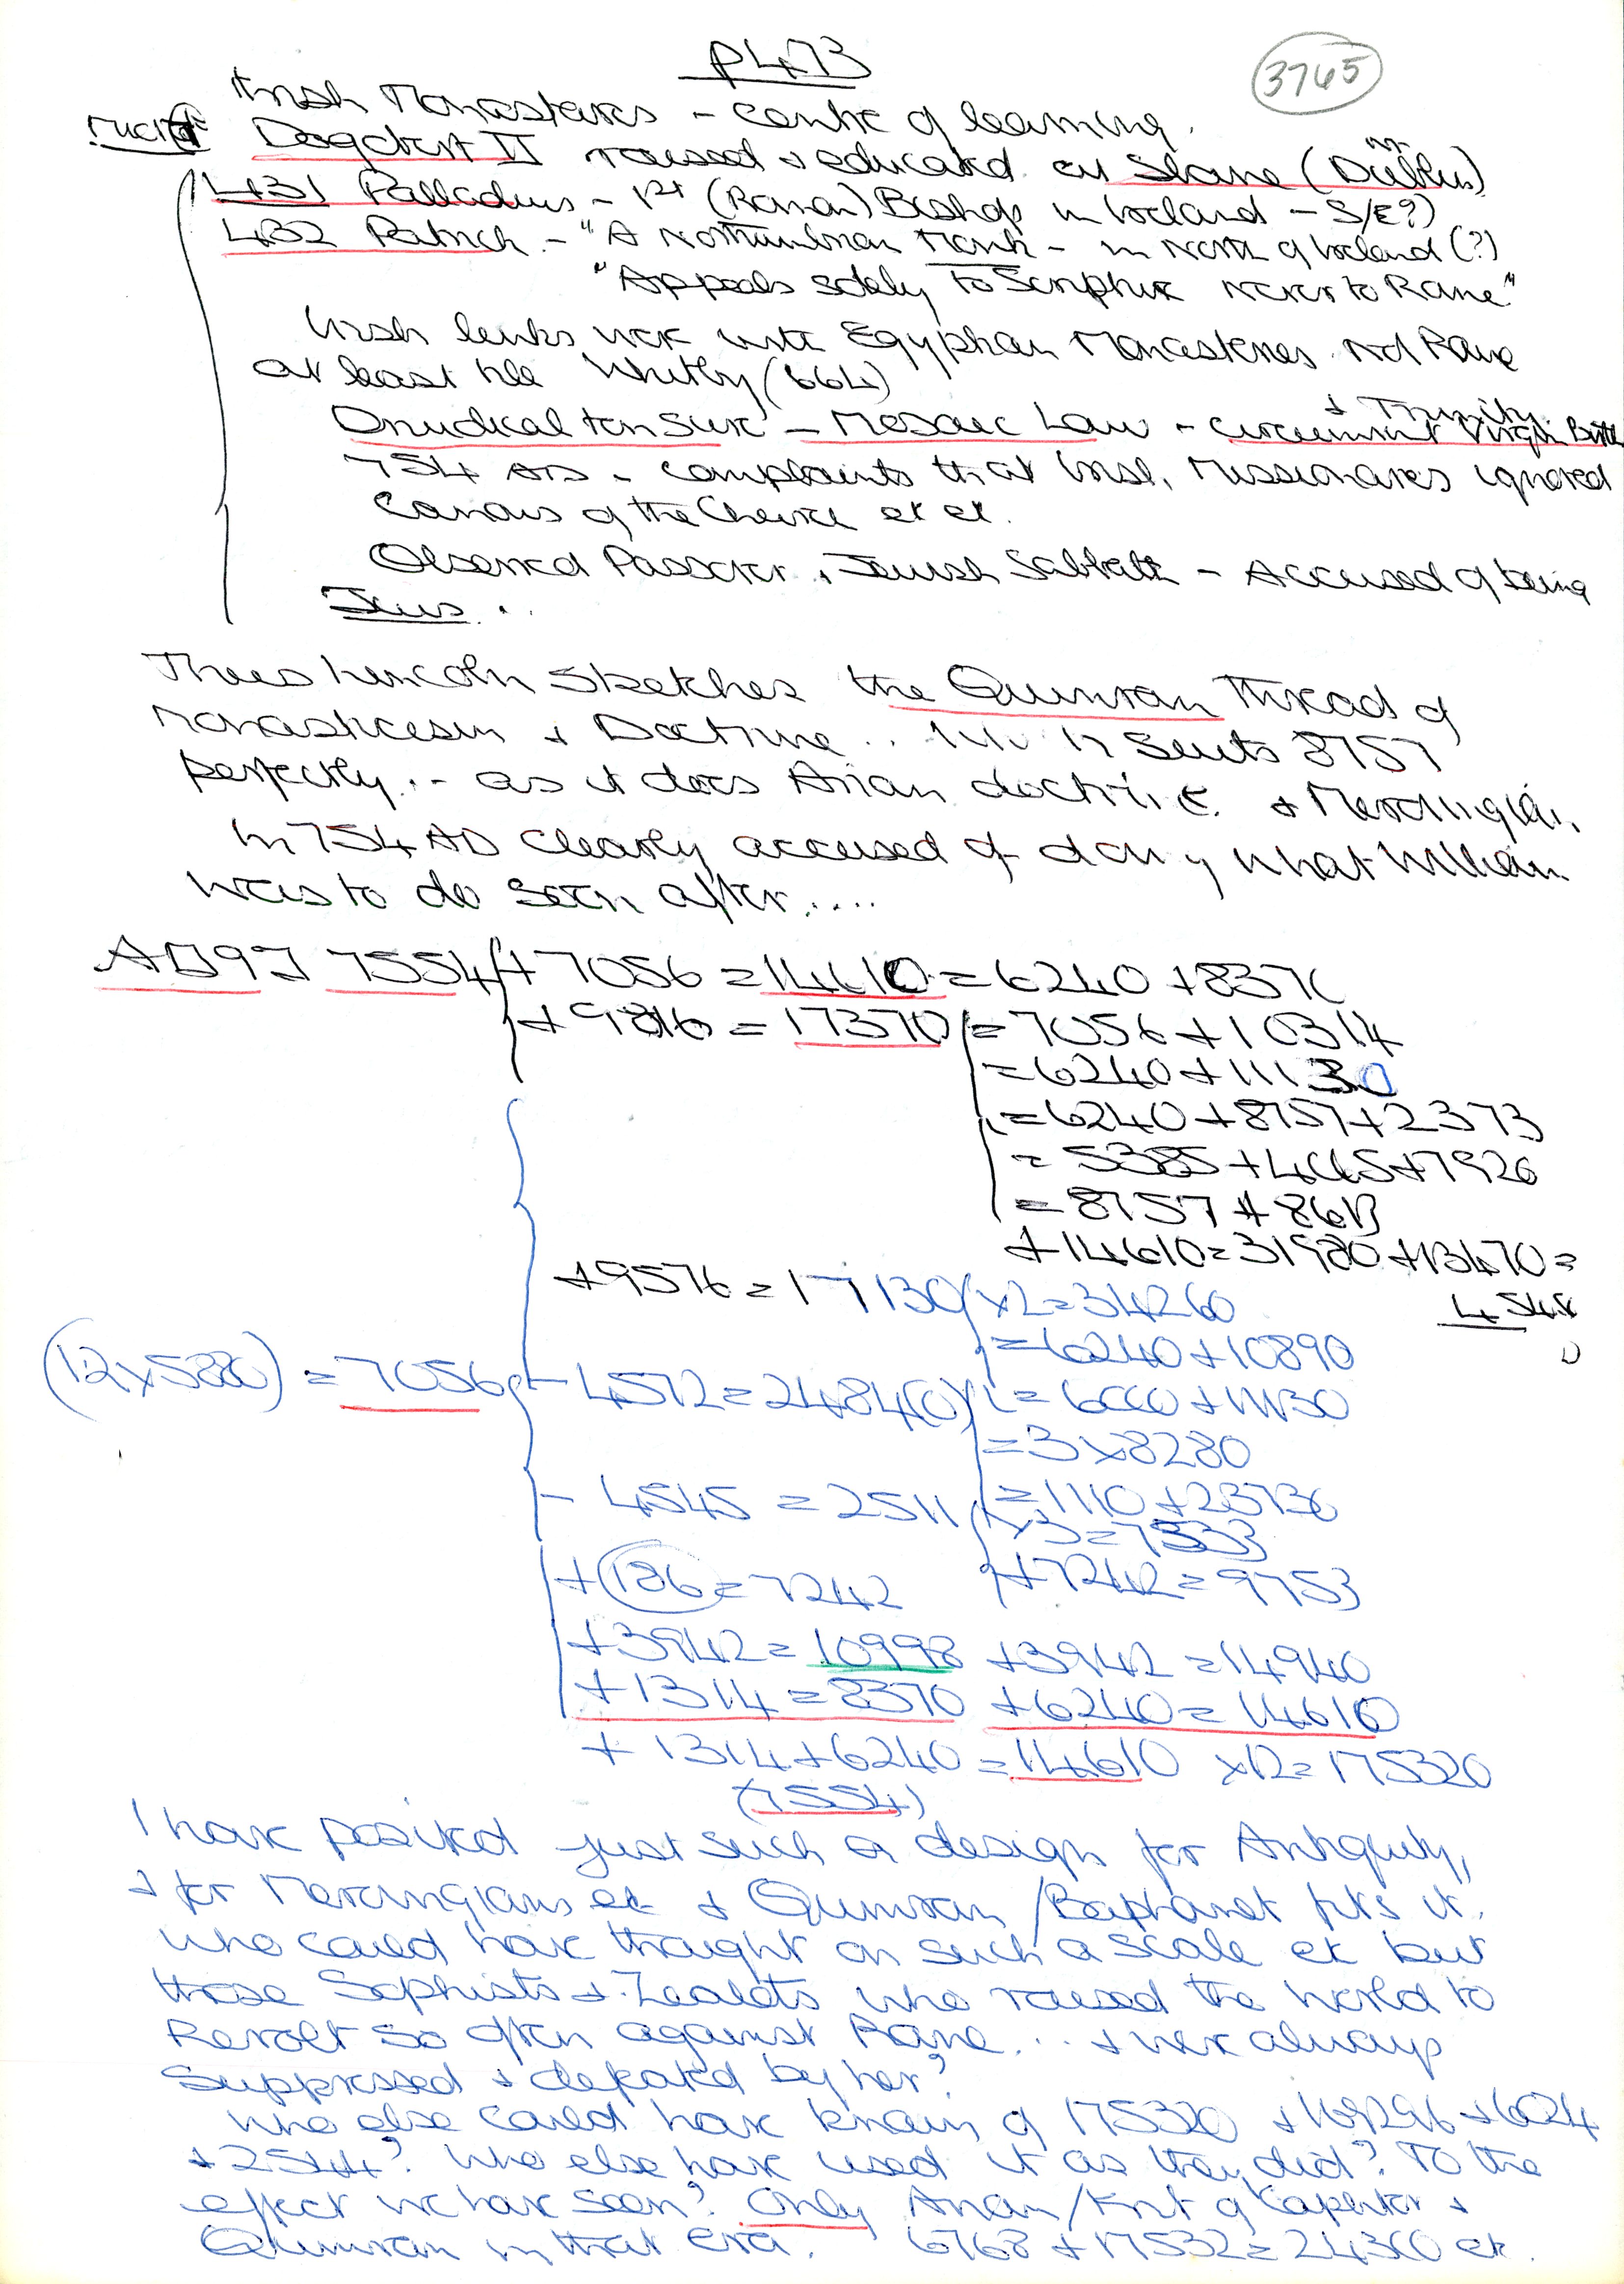 P473
3765
Irish Monasteries - centre of learning.
Dagobert II raised & educated at Slane (nr Dublin)
431 Palladius - 1st (Roman) Bishop in Ireland - S/E?)
432 Patrick - "A Northumbrian Monk - in North of Ireland (?)
"Appeals solely to Scripture never to Rome"
Irish links were with Egyptian Monasteries not Rome
at least till Whitby (664)
Druidical tonsure - Mosaic Law - circumvent Virgin Birth
& Trinity
754 AD - complaints that Irish Missionaries ignored
Canons of the Church et et.
Observed Passover, Jewish Sabbath - Accused of being
Jews ..
Thus Lincoln sketches the Qumran Thread of
Monasticism & Doctrine .. suits 8757
perfectly .. as it does Arian doctrine & Merovingian.
In 754 AD clearly accused of doing what William
was to do soon after ....
7554 + 7056 = 14610 = 6240 + 8370
+ 9816 = 17370 = 7056 + 10314
= 6240 + 11130
= 6240 + 8757 + 2373
= 5385 + 4065 + 7920
= 8757 + 8613
+ 14610 = 31980 + 13470 =
+ 9576 = 17130 x 2 = 34260
= 6240 + 10890
(12 x 588) = 7056 - 4572 = 2484(0) = 6000 + 11130
= 3 x 8280
- 4545 = 2511 = 1110 + 23730
x 3 = 7533
+ (186 = 7242 + 7242 = 9753
+ 3942 = 10998 + 3942 = 14940
+ 1314 = 8370 + 6240 = 14610
+ 1314 + 6240 = 14610 x 12 = 175320
(7554)
I have posited just such a design for Antiquity,
& for Merovingians et & Qumran / Baphomet fits it.
Who could have thought on such a scale et but
those Sophists & Zealots who roused the world to
Revolt so often against Rome ... & were always
Suppressed & defeated by her?
Who else could have known of 175320 + 169296 + 6024
& 2544? Who else have used it as they did? To the
effect we have seen? Only Arian / Knt of Carpenter &
Qumran in that era. 6768 + 17532 = 24300 et.